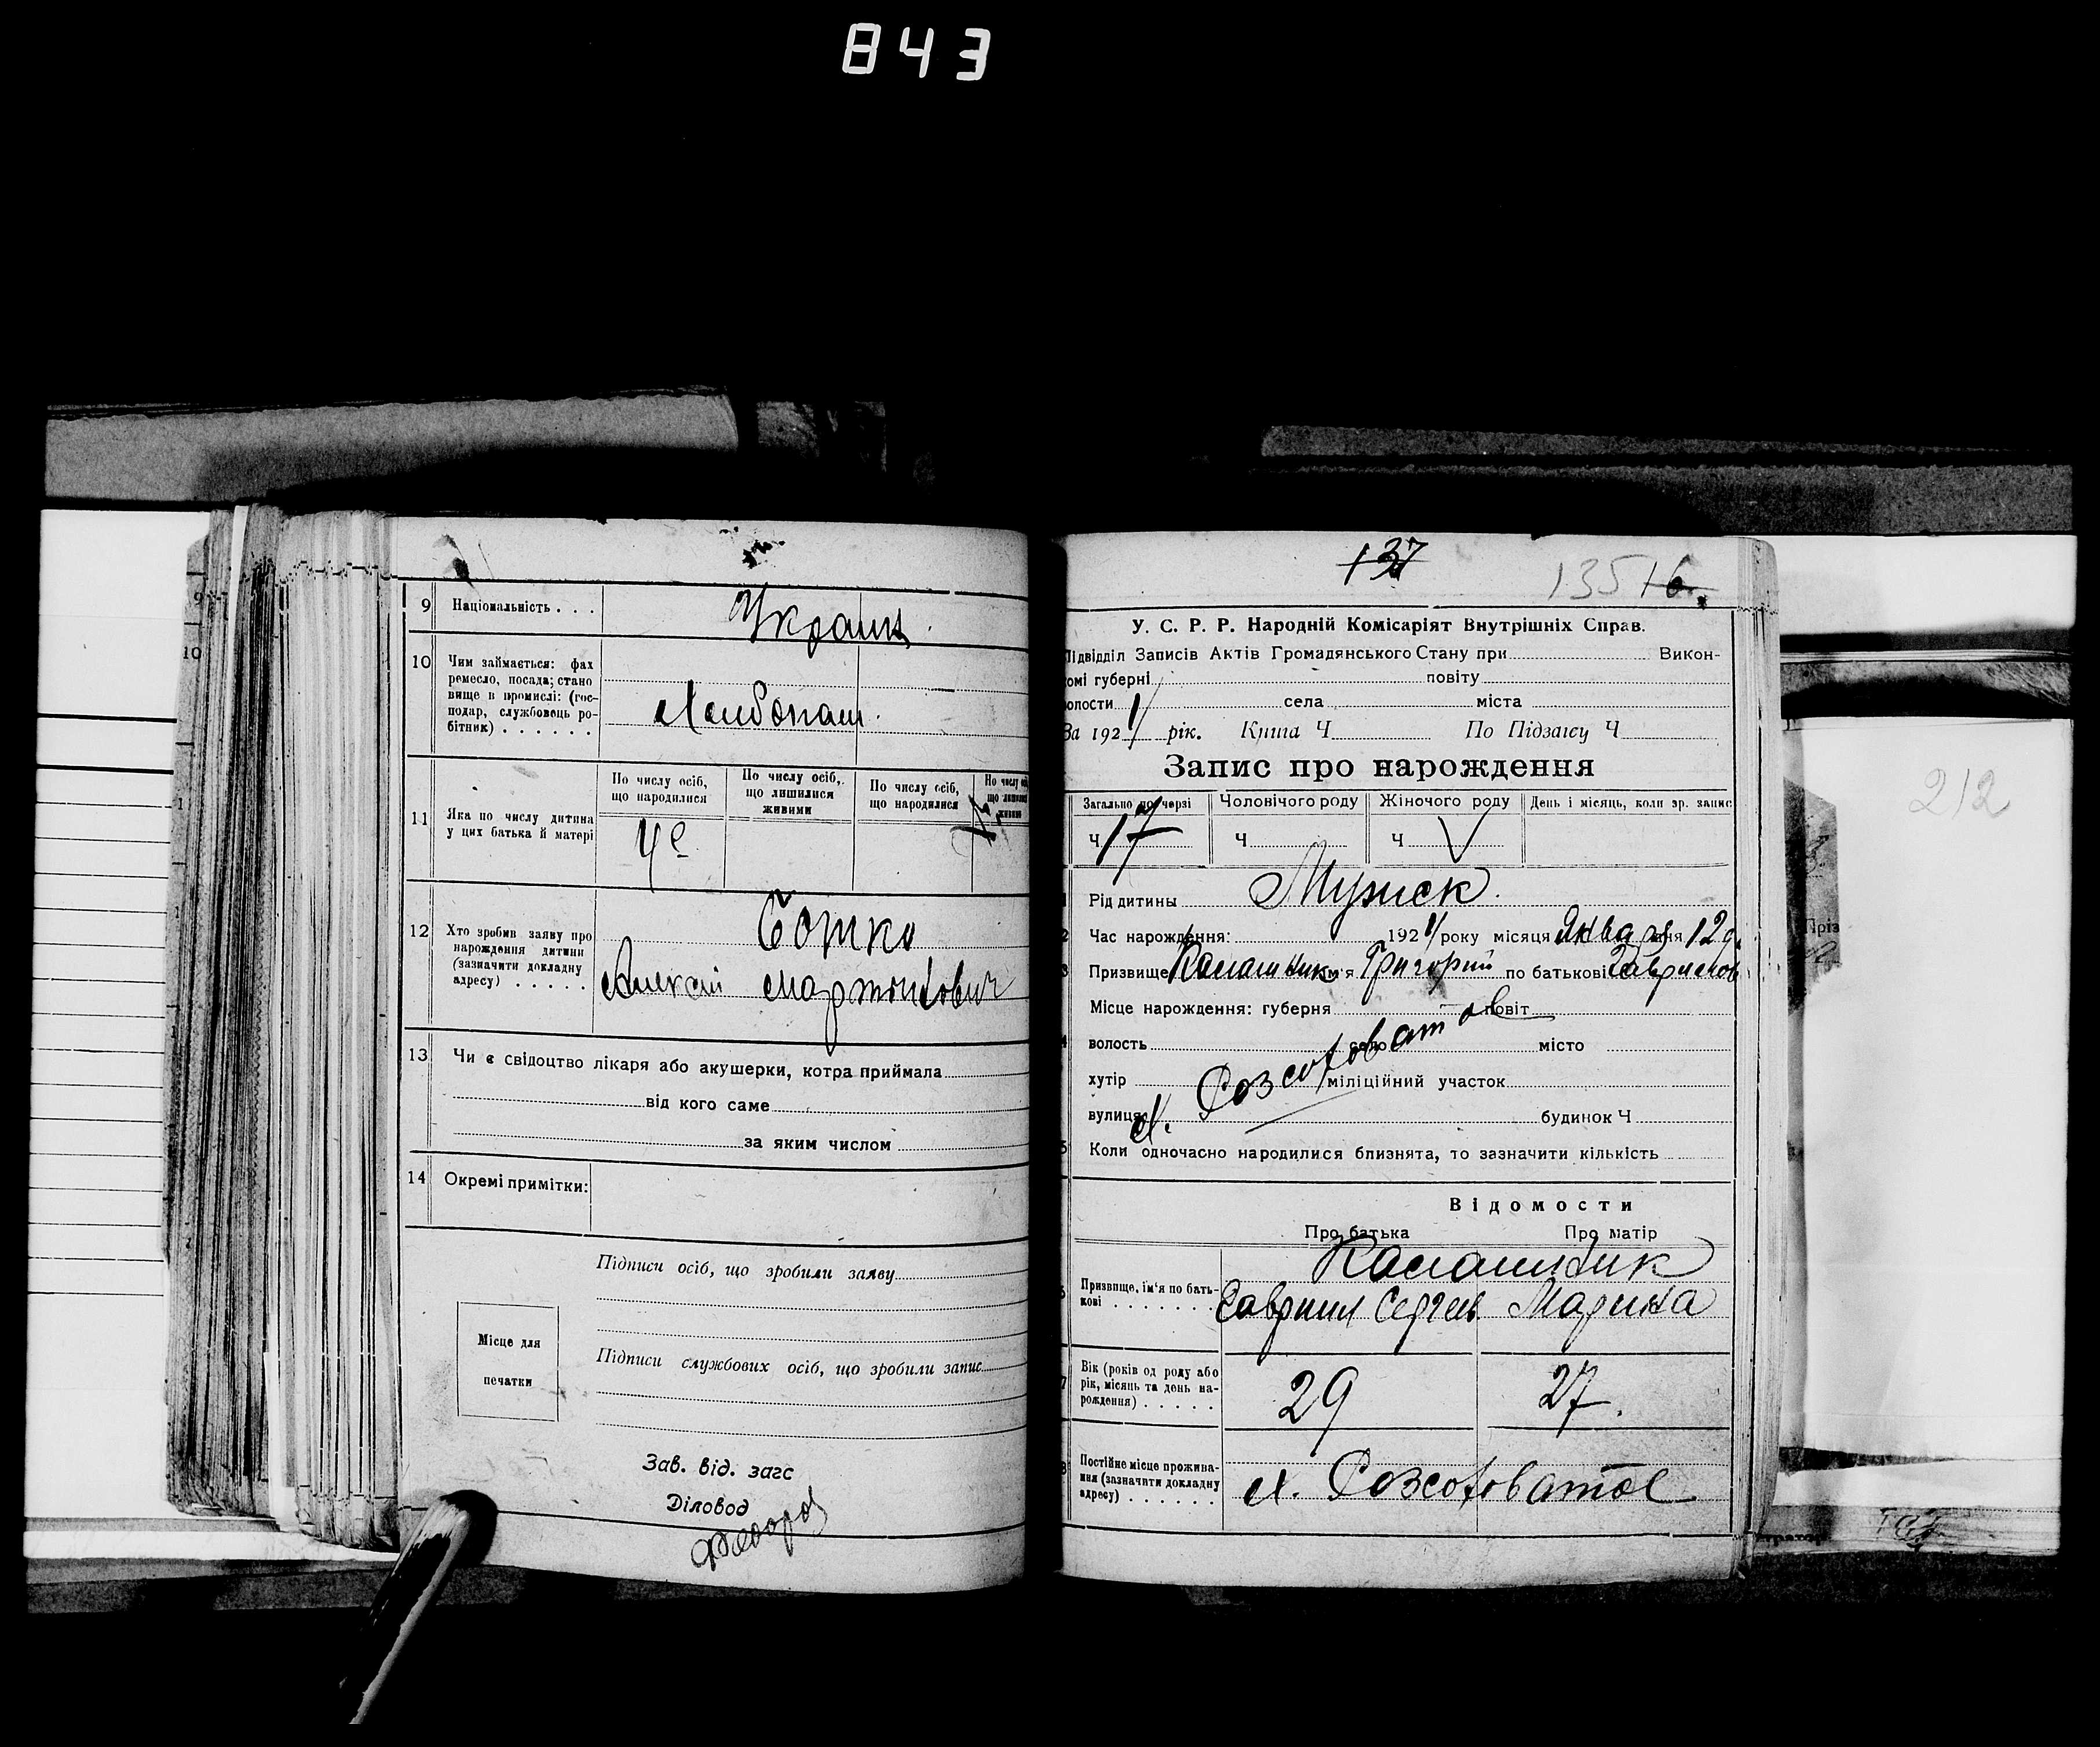 843
9 Національність . . .
Украин.
10 Чим займається: фах
ремесло, посада; стано
вище в промислі: (гос-
подар, службовець ро-
бітник) . . . . . .
Хлебопаш.
11 Яка по числу дитина
у цих батька й матері
По числу осіб,
що народилися
По числу осіб,
що лишилися
живими
По числу осіб,
що народилися
По числу
що лишил
живими
4е
12 Хто зробив заяву про
нарождення дитини
(зазначити докладну
адресу) . . . . .
Алексій Мартинович
13 Чи є свідоцтво лікаря або акушерки, котра приймала
від кого саме
за яким числом
14 Окремі примітки:
Підписи осіб, що зробили заяву
Місце для
печатки
Підписи службових осіб, що зробили запис
Зав. від. загс
Діловод
Федоров
137
135 16.
У. С. Р. Р. Народній Комісаріят Внутрішніх Справ.
Підвідділ Записів Актів Громадянського Стану при Викон-
комі губерні повіту
волости села міста
За 1921 рік. Книга Ч По Підзагсу Ч
Запис про нарождення
Загально по черзі Чоловічого роду Жіночого роду День і місяць, коли зр. запис
Ч 17 Ч Ч V
Рід дитины Мужеск.
2 Час нарождення: 1921 року місяця Января дня 12 д.
3 Призвище Калашник ім'я Григорий по батькові Гаврилов
Місце нарождення: губерня повіт
4 волость село місто
хутір міліційний участок
х. Розсоховатое
вулиця будинок Ч
5 Коли одночасно народилися близнята, то зазначити кількість
Відомости
Про батька Про матір
Калашник
6 Призвище, ім'я по бать-
кові . . . . . . .
Гавриил Сергеев. Марина
7 Вік (років од роду або
рік, місяць та день на-
рождення) . . . . .
29 27.
8 Постійне місце прожива-
ння (зазначити докладну
адресу) . . . . . .
х. Розсоховатое
212